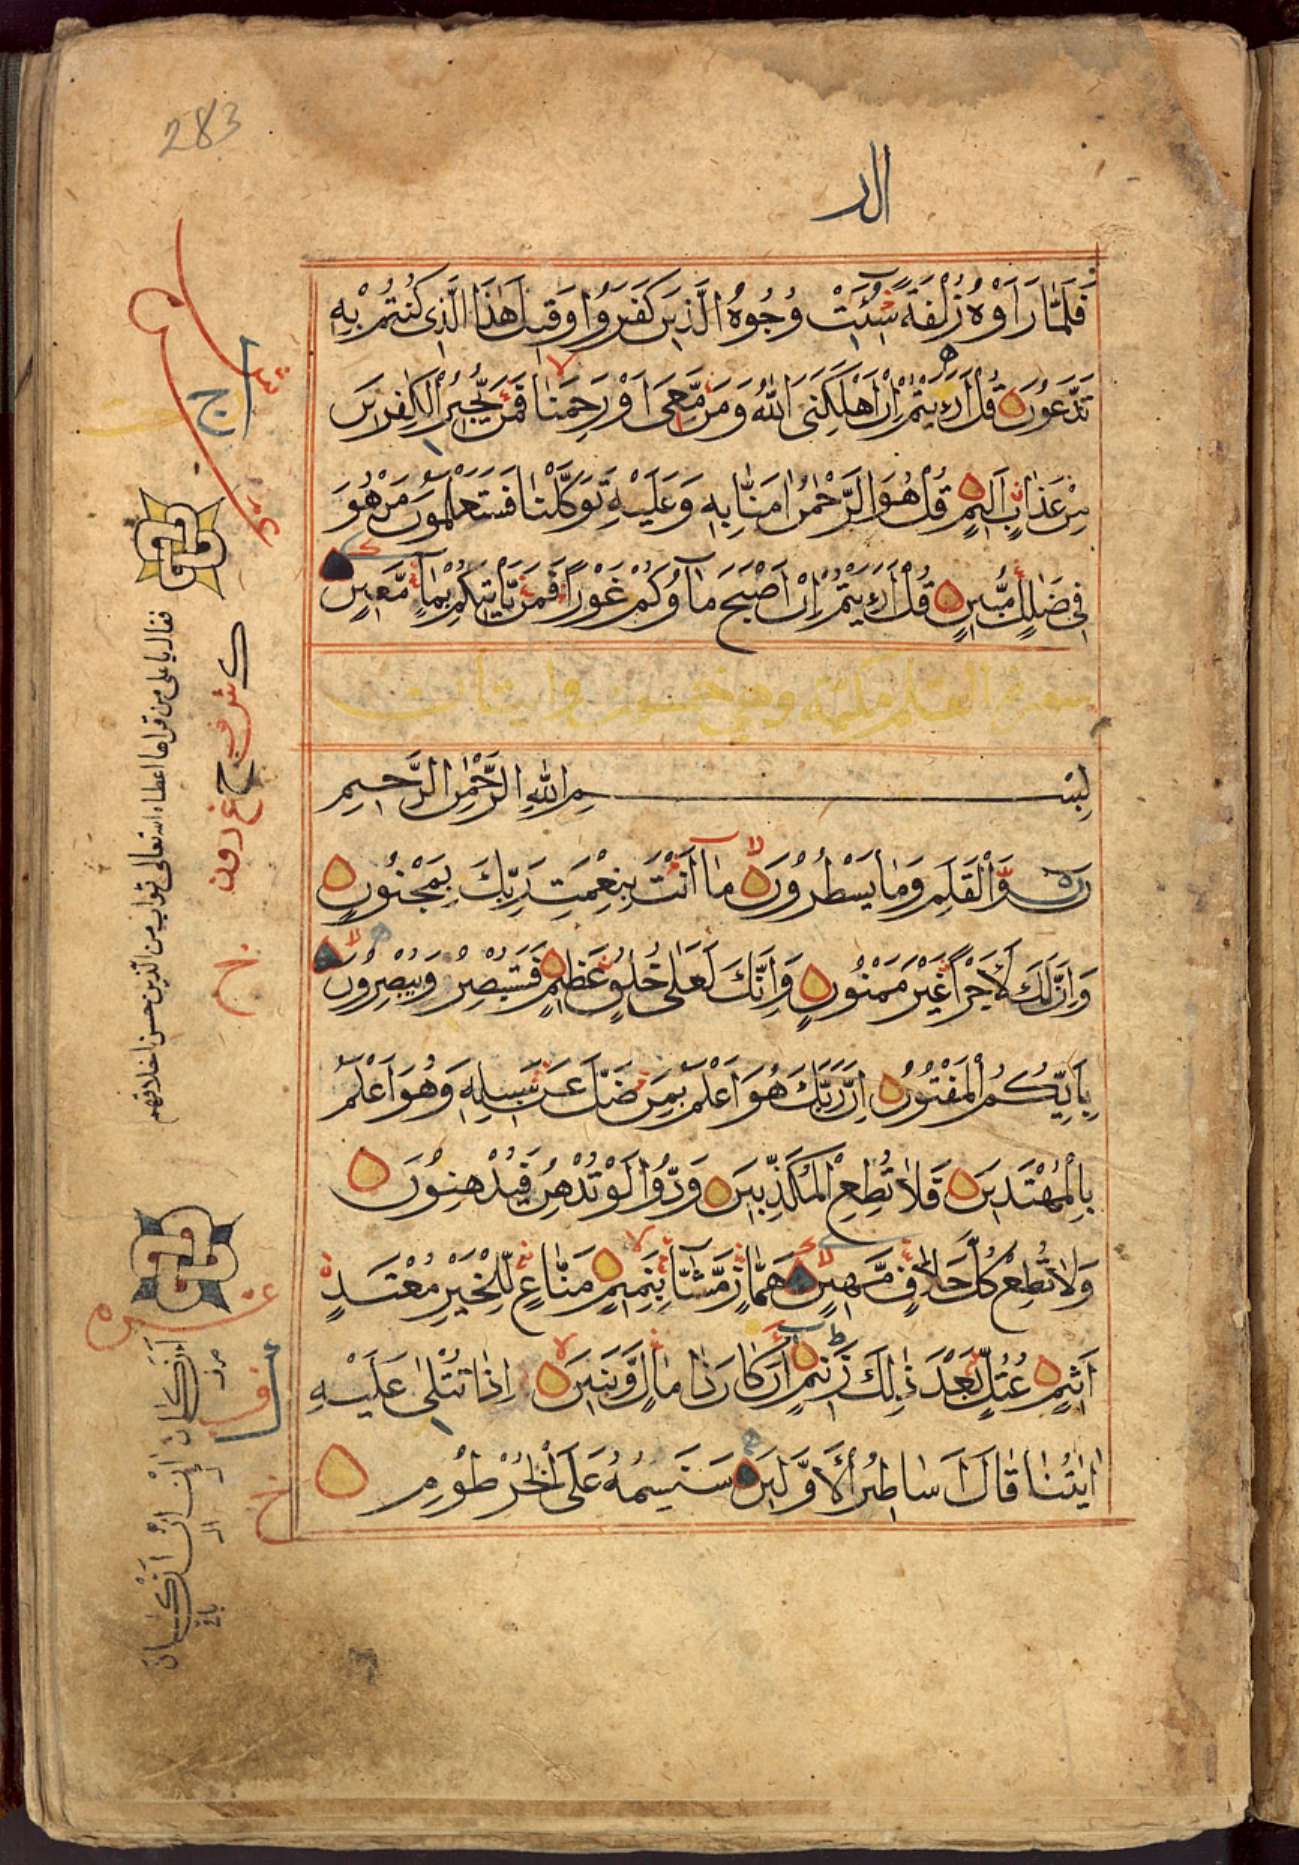 283
الر
فَلَمَّا رَاَوْهُ زُلْفَةً سِيْئَتْ وُجُوْهُ الَّذِيْنَ كَفَرُوْا وَقِيْلَ هٰذَا الَّذِى كُنْتُمْ بِهٖ
تَدَّعُوْنَ قُلْ اَرَءَيْتُمْ اِنْ اَهْلَكَنِىَ اللّٰهُ وَمَنْ مَّعِىَ اَوْ رَحِمَنَا فَمَنْ يُّجِيْرُ الْكٰفِرِيْنَ
مِنْ عَذَابٍ اَلِيْمٍ قُلْ هُوَ الرَّحْمٰنُ اٰمَنَّا بِهٖ وَعَلَيْهِ تَوَكَّلْنَا فَسَتَعْلَمُوْنَ مَنْ هُوَ
فِىْ ضَلٰلٍ مُّبِيْنٍ قُلْ اَرَءَيْتُمْ اِنْ اَصْبَحَ مَآؤُكُمْ غَوْرًا فَمَنْ يَّاْتِيْكُمْ بِمَآءٍ مَّعِيْنٍ
سورة القلم مكية وهي خمسون وايتان
بِسْمِ اللّٰهِ الرَّحْمٰنِ الرَّحِيْمِ
نٓ وَالْقَلَمِ وَمَا يَسْطُرُوْنَ مَآ اَنْتَ بِنِعْمَتِ رَبِّكَ بِمَجْنُوْنٍ
وَاِنَّ لَكَ لَاَجْرًا غَيْرَ مَمْنُوْنٍ وَاِنَّكَ لَعَلٰى خُلُقٍ عَظِيْمٍ فَسَتُبْصِرُ وَيُبْصِرُوْنَ
بِاَيِّكُمُ الْمَفْتُوْنُ اِنَّ رَبَّكَ هُوَ اَعْلَمُ بِمَنْ ضَلَّ عَنْ سَبِيْلِهٖ وَهُوَ اَعْلَمُ
بِالْمُهْتَدِيْنَ فَلَا تُطِعِ الْمُكَذِّبِيْنَ وَدُّوْا لَوْ تُدْهِنُ فَيُدْهِنُوْنَ
وَلَا تُطِعْ كُلَّ حَلَّافٍ مَّهِيْنٍ هَمَّازٍ مَّشَّآءٍ بِنَمِيْمٍ مَنَّاعٍ لِّلْخَيْرِ مُعْتَدٍ
اَثِيْمٍ عُتُلٍّ بَعْدَ ذٰلِكَ زَنِيْمٍ اَنْ كَانَ ذَا مَالٍ وَّبَنِيْنَ اِذَا تُتْلٰى عَلَيْهِ
اٰيٰتُنَا قَالَ اَسَاطِيْرُ الْاَوَّلِيْنَ سَنَسِمُهٗ عَلَى الْخُرْطُوْمِ
فقال يا على من قراها اعطاه الله تعالى ثواب من الذين حسن اخلاقهم